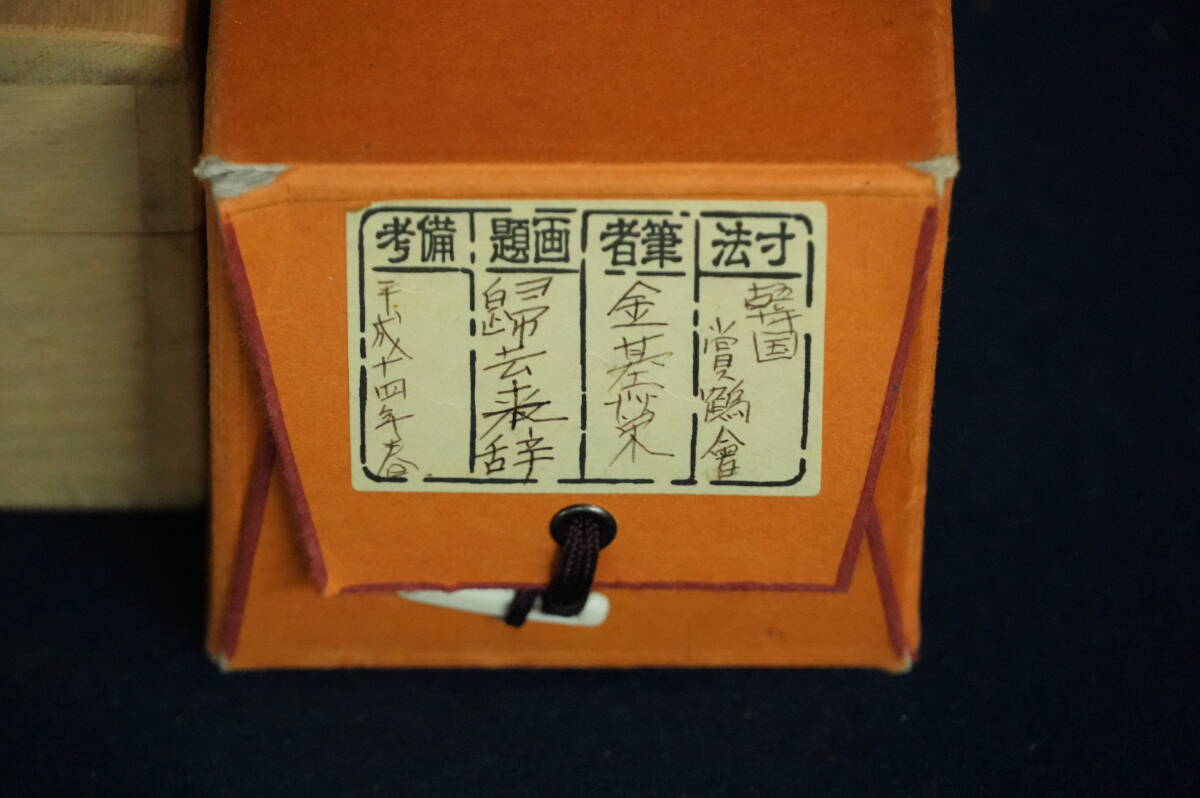 寸法
韓国
賞鶴會
筆者
金基栄
画題
歸去来辞
備考
平成十四年春